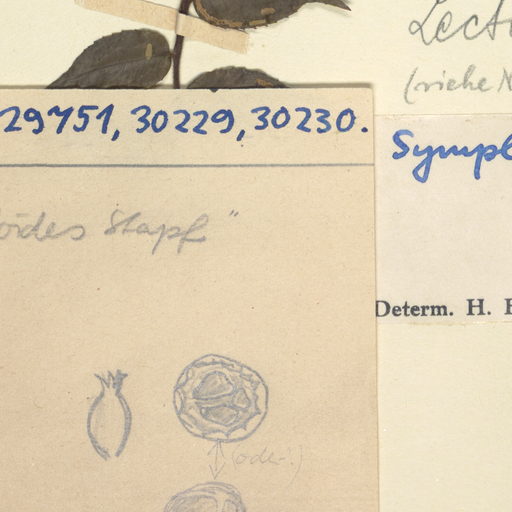 Lecto
(siehe N
29751, 30229, 30230.
Sympl
oides Stapf"
Determ. H. H
(oder?)